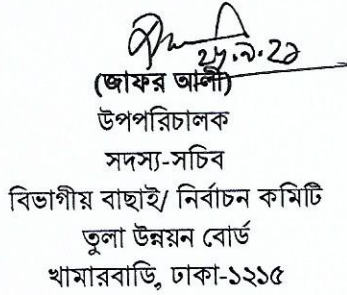 (জাফর আলী)
উপপরিচালক
সদস্য-সচিব
বিভাগীয় বাছাই/ নির্বাচন কমিটি
তুলা উন্নয়ন বোর্ড
খামারবাড়ি, ঢাকা-১২১৫